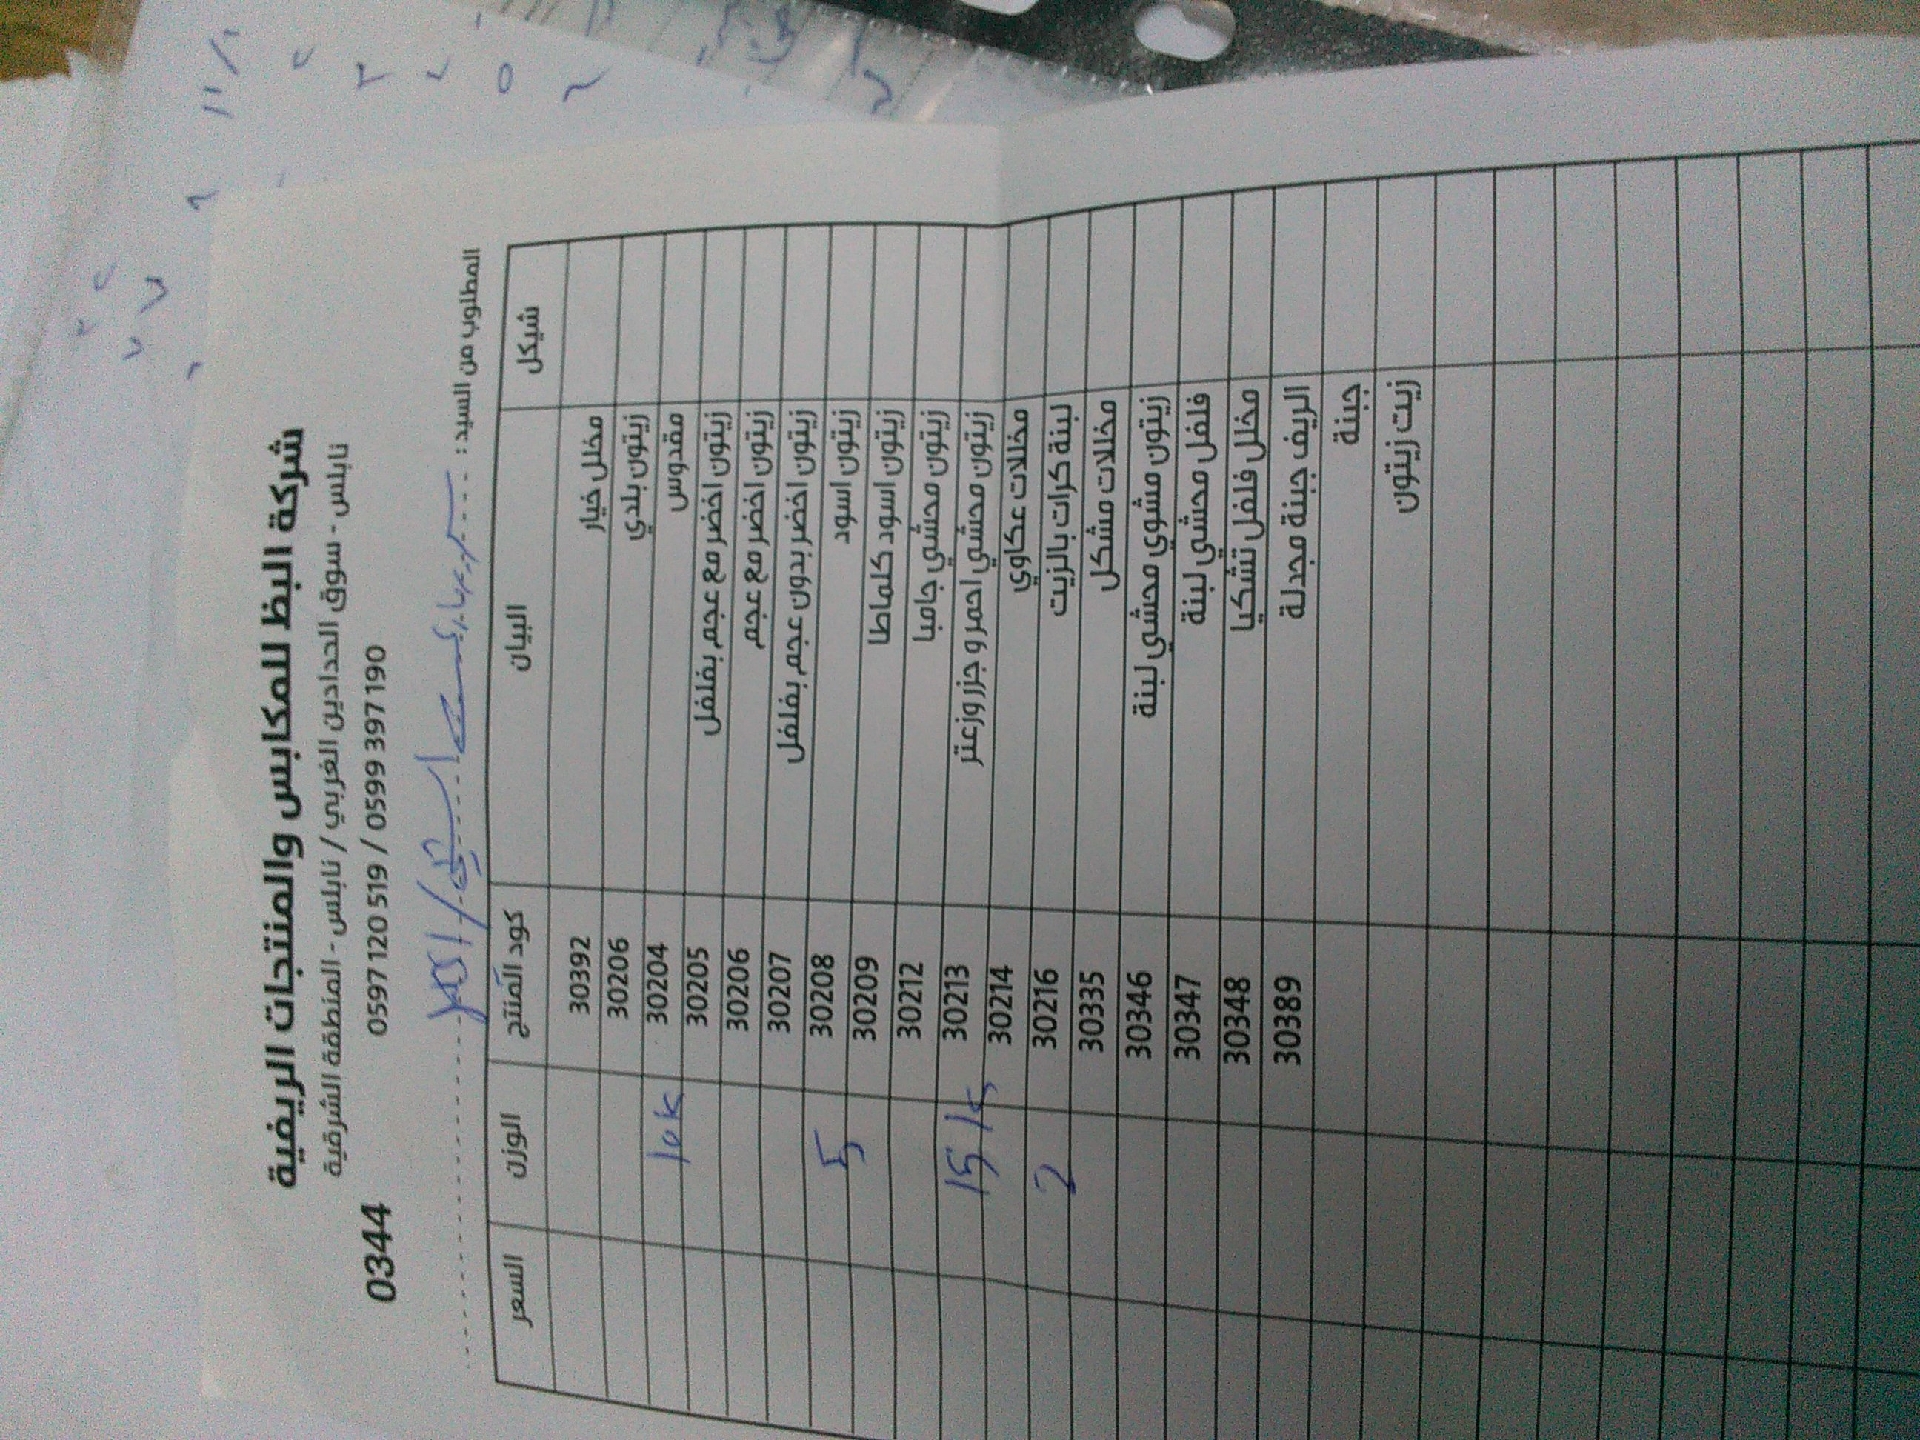 شركة البظ للمكابس والمنتجات الريفية
نابلس - سوق الحدادين الغربي / نابلس - المنطقة الشرقية
0597 120 519 / 0599 397 190
0344
المطلوب من السيد :
شيكل البيان كود المنتج الوزن السعر
مخلل خيار 30392
زيتون بلدي 30206
مقدوس 30204 10K
زيتون اخضر مع عجم بفلفل 30205
زيتون اخضر مع عجم 30206
زيتون اخضر بدون عجم بفلفل 30207
زيتون اسود 30208 5
زيتون اسود كلماطا 30209
زيتون محشي جامبا 30212
زيتون محشي احمر و جزر وزعتر 30213 15K
مخللات عكاوي 30214
لبنة كرات بالزيت 30216 2
مخللات مشكل 30335
زيتون مشوي محشي لبنة 30346
فلفل محشي لبنة 30347
مخلل فلفل تشكيا 30348
الريف جبنة مجدلة 30389
جبنة
زيت زيتون